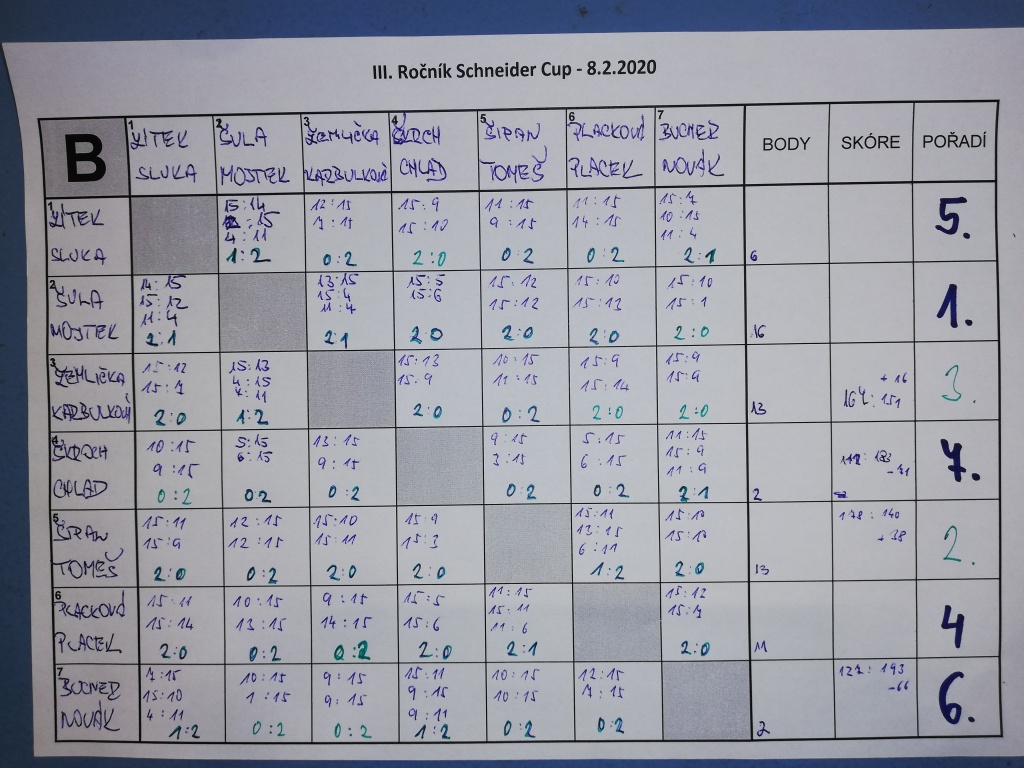 III. Ročník Schneider Cup - 8.2.2020
B 1 LÍTEK 2 ŠULA 3 ŽEMLIČKA 4 ŠKRCH 5 ŠIPAN 6 PLACKOVÁ 7 BUCHER BODY SKÓRE POŘADÍ
SLUKA MOJTEK KARBULKOVÁ CHLAD TOMEŠ PLACEK NOVÁK
1 LÍTEK 15:14 12:15 15:9 11:15 11:15 15:7 5.
:15 7:15 15:10 9:15 14:15 10:15
4:11 11:4
SLUKA 1:2 0:2 2:0 0:2 0:2 2:1 6
2 14:15 13:15 15:5 15:12 15:10 15:10 1.
ŠULA 15:12 15:4 15:6 15:12 15:13 15:1
11:4 11:4
MOJTEK 2:1 2:1 2:0 2:0 2:0 2:0 16
3 ŽEMLIČKA 15:12 15:13 15:13 10:15 15:9 15:9 +16 3.
15:7 4:15 15:9 11:15 15:14 15:9 167:151
7:11
KARBULKOVÁ 2:0 1:2 2:0 0:2 2:0 2:0 13
4 ŠKRCH 10:15 5:15 13:15 9:15 5:15 11:15 7.
9:15 6:15 9:15 3:15 6:15 15:9 112:183
11:9 -71
CHLAD 0:2 0:2 0:2 0:2 0:2 2:1 2
5 ŠIPAN 15:11 12:15 15:10 15:9 15:11 15:10 178:140 2.
15:9 12:15 15:11 15:3 13:15 15:10 +38
6:11
TOMEŠ 2:0 0:2 2:0 2:0 1:2 2:0 13
6 PLACKOVÁ 15:11 10:15 9:15 15:5 11:15 15:12 4
15:14 13:15 14:15 15:6 15:11 15:7
11:6
PLACEK 2:0 0:2 0:2 2:0 2:1 2:0 11
7 BUCHER 7:15 10:15 9:15 15:11 10:15 12:15 127:193 6.
15:10 1:15 9:15 9:15 10:15 7:15 -66
4:11 9:11
NOVÁK 1:2 0:2 0:2 1:2 0:2 0:2 2